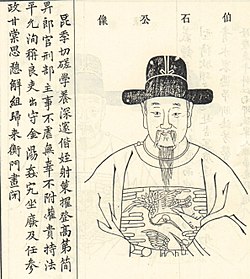 伯石公像
昆季切磋學養深邃偕姪射策擢登高第簡
昇郎官刑部主事不虐無辜不附權貴持法
平允洵稱良吏出守金湯姦宄坐廢及任參
政甘棠思憩解組歸來衡門晝閉